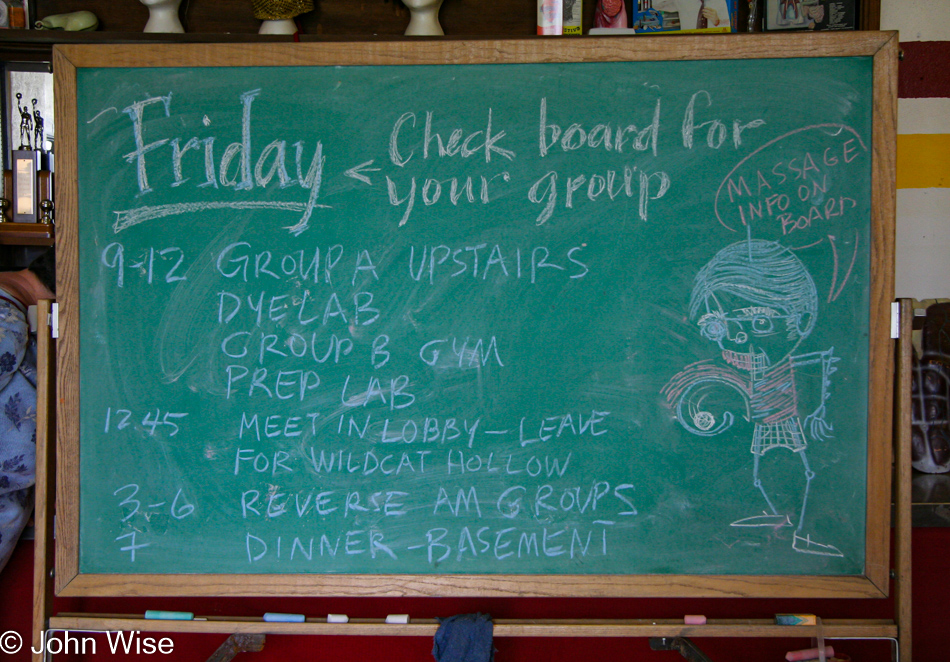 Friday < Check board for
your group
MASSAGE
INFO ON
BOARD
9-12 GROUP A UPSTAIRS
DYE LAB
GROUP B GYM
PREP LAB
12:45 MEET IN LOBBY - LEAVE
FOR WILDCAT HOLLOW
3-6 REVERSE AM GROUPS
7 DINNER - BASEMENT
© John Wise